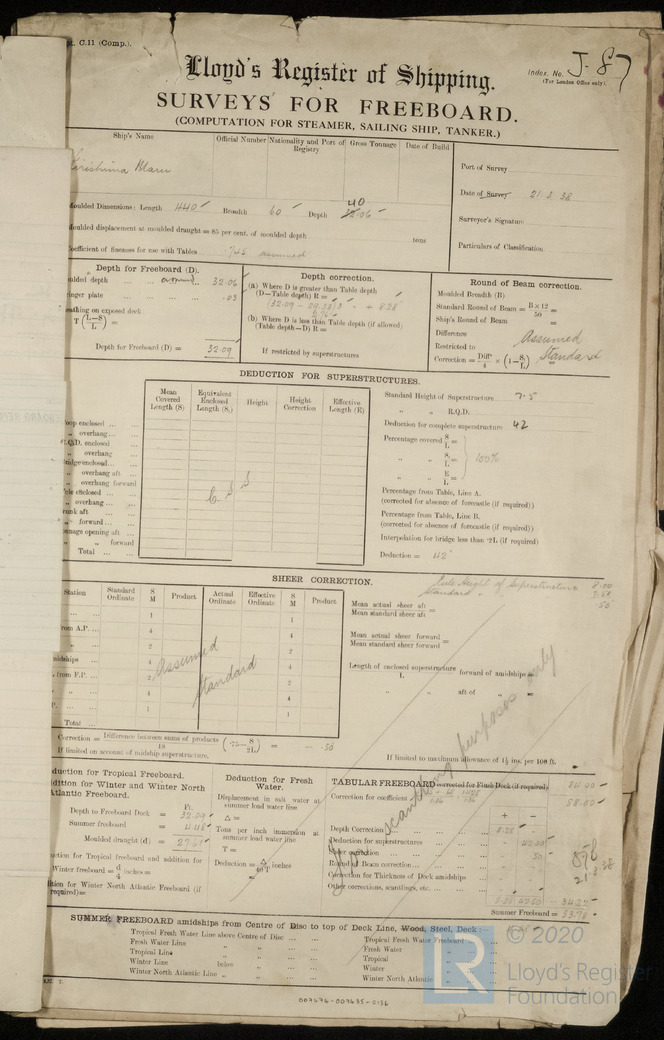 C.11 (Comp.).
Index. No. J-87
(For London Office only).
Lloyd's Register of Shipping.
SURVEYS FOR FREEBOARD.
(COMPUTATION FOR STEAMER, SAILING SHIP, TANKER.)
Ship's Name
Official Number
Nationality and Port of Registry
Gross Tonnage
Date of Build
Port of Survey
Maru
Date of Survey 21.3.38
Dimensions: Length 440 Breadth 60 Depth 40
Surveyor's Signature
displacement at moulded draught = 85 per cent. of moulded depth tons
Particulars of Classification
of fineness for use with Tables assumed
Depth for Freeboard (D).
depth 32.06
plate .03
on exposed deck
T (L-S/L) =
Depth for Freeboard (D) = 32.09
Depth correction.
(a) Where D is greater than Table depth
(D-Table depth) R =
+ 8.28
(b) Where D is less than Table depth (if allowed)
(Table depth-D) R =
If restricted by superstructures
Round of Beam correction.
Moulded Breadth (B)
Standard Round of Beam = B×12/50 =
Ship's Round of Beam =
Difference Assumed
Restricted to Standard
Correction = Diffce/4 × (1-S₁/L) =
DEDUCTION FOR SUPERSTRUCTURES.
Mean Covered Length (S)
Equivalent Enclosed Length (S₁)
Height
Height Correction
Effective Length (E)
enclosed
overhang
R.Q.D. enclosed
overhang
enclosed
overhang aft
overhang forward
enclosed
overhang
aft
forward
opening aft
forward
Total
C S S
Standard Height of Superstructure 7.5
" " R.Q.D.
Deduction for complete superstructure 42
Percentage covered S/L =
" " S₁/L = 100%
" " E/L =
Percentage from Table, Line A.
(corrected for absence of forecastle (if required))
Percentage from Table, Line B.
(corrected for absence of forecastle (if required))
Interpolation for bridge less than ·2L (if required)
Deduction = 42
SHEER CORRECTION.
Rule Height of Superstructure 8.00
Standard
.50
Station
Standard Ordinate
S M
Product
Actual Ordinate
Effective Ordinate
S M
Product
1 1
from A.P. 4 4
2 2
4 4
from F.P. 2 2
4 4
1 1
Total
Assumed
Standard
Mean actual sheer aft
Mean standard sheer aft =
Mean actual sheer forward
Mean standard sheer forward =
Length of enclosed superstructure forward of amidships =
L
" " aft of " =
Correction = Difference between sums of products/18 (·75-S/2L) = - .50
If limited on account of midship superstructure.
If limited to maximum allowance of 1½ ins. per 100 ft.
For scantling purposes only
Deduction for Tropical Freeboard.
Addition for Winter and Winter North
Atlantic Freeboard.
Ft.
Depth to Freeboard Deck = 32.09
Summer freeboard = 4.48
Moulded draught (d) = 27.61
for Tropical freeboard and addition for
Winter freeboard = d/4 inches =
for Winter North Atlantic Freeboard (if
required) =
Deduction for Fresh Water.
Displacement in salt water at
summer load water line
Δ =
Tons per inch immersion at
summer load water line
T =
Deduction = Δ/40T inches
=
TABULAR FREEBOARD corrected for Flush Deck (if required)
Correction for coefficient
88.00
+ -
Depth Correction 8.28
Deduction for superstructures 42.00
Sheer correction .50
Round of Beam correction
Correction for Thickness of Deck amidships
Other corrections, scantlings, etc.
8.28 42.50 - 34.22
Summer Freeboard = 53.78
21.3.38
SUMMER FREEBOARD amidships from Centre of Disc to top of Deck Line, Wood, Steel, Deck:
Tropical Fresh Water Line above Centre of Disc
Fresh Water Line " "
Tropical Line " "
Winter Line below "
Winter North Atlantic Line " "
Tropical Fresh Water Freeboard
Fresh Water "
Tropical "
Winter "
Winter North Atlantic "
007676-007685-0136
LR
© 2020
Lloyd's Register
Foundation